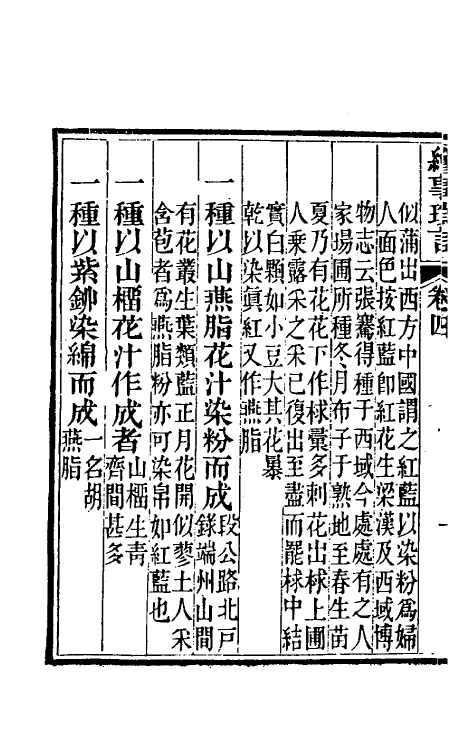 卷四
似蒲出西方中國謂之紅藍以染粉為婦
人面色按紅藍卽紅花生梁漢及西域博
物志云張騫得種于西域今處處有之人
家場圃所種冬月布子于熟地至春生苗
夏乃有花花下作梂彙多刺花出梂上圃
人乘露采之采已復出至盡而罷梂中結
實白顆如小豆大其花暴
乾以染眞紅又作燕脂
一種以山燕脂花汁染粉而成段公路北戸
錄端州山間
有花叢生葉類藍正月花開似蓼土人采
含苞者爲燕脂粉亦可染帛如紅藍也
一種以山榴花汁作成者山榴生靑
齊間甚多
一種以紫鉚染綿而成一名胡
燕脂